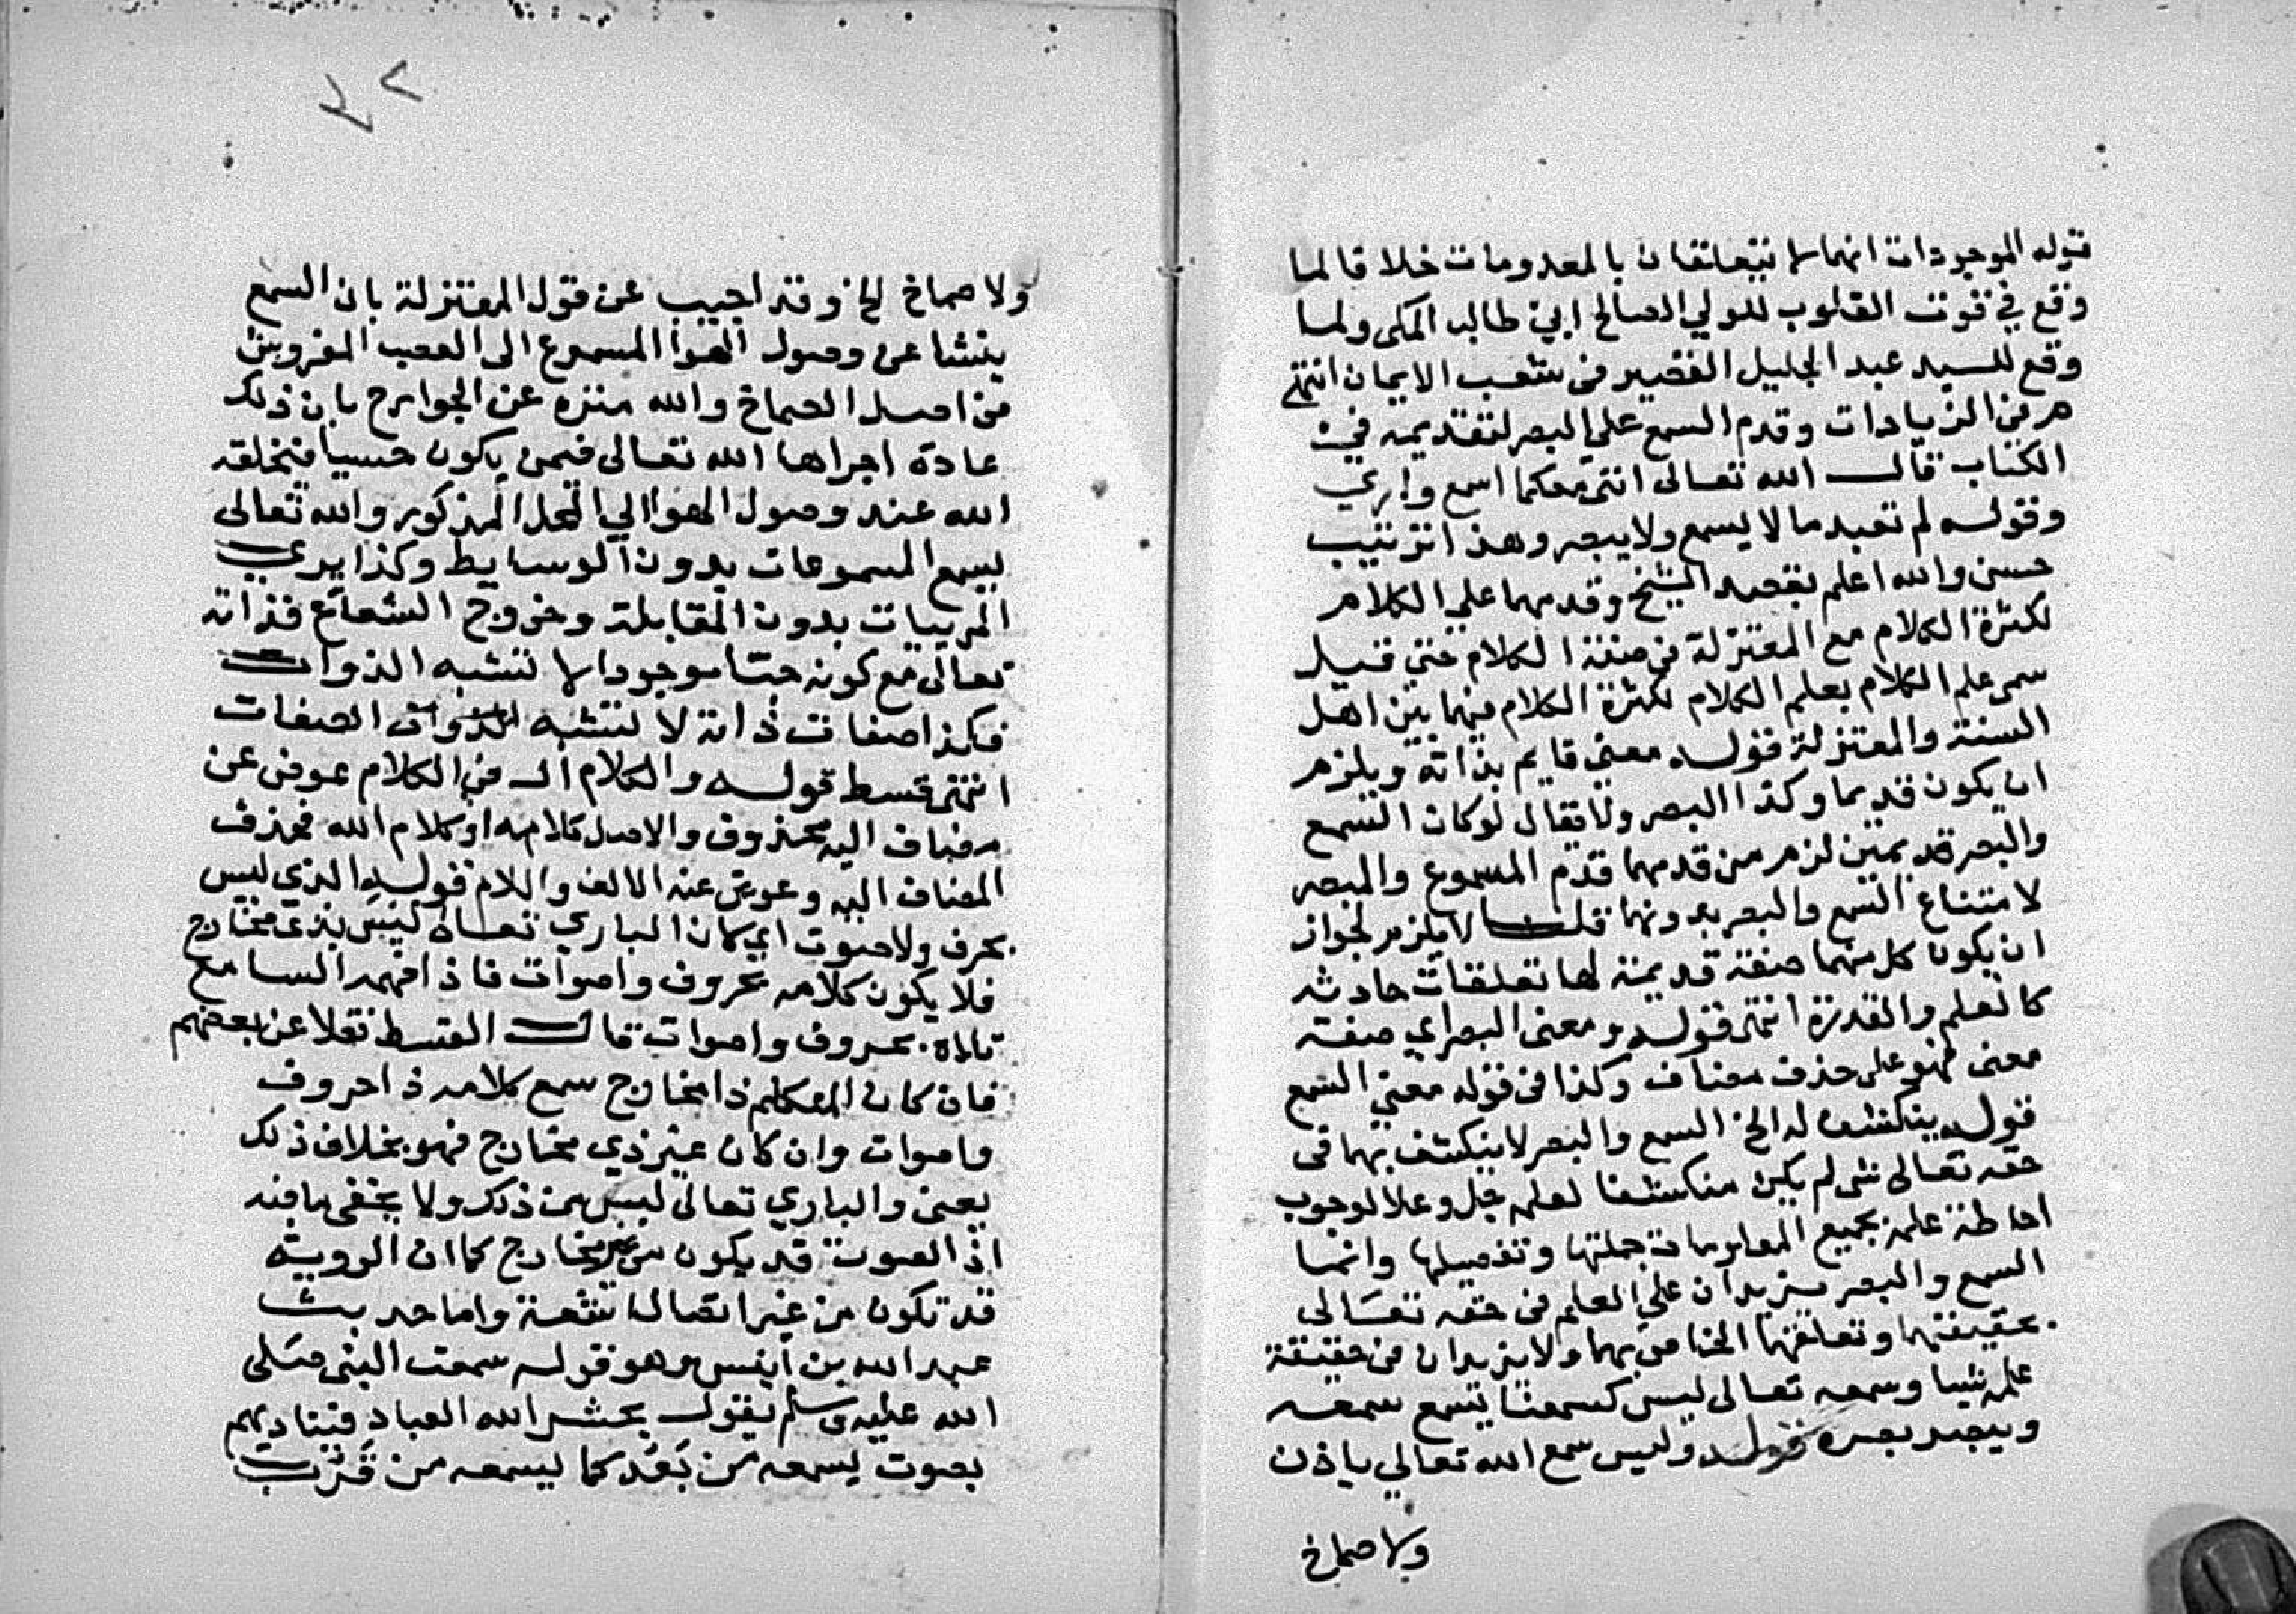 قوله الموجودات انهما لا يتعلقان بالمعدومات خلافا لما
وقع في قوت القلوب للولي الصالح ابي طالب المكى ولما
وقع للسيد عبد الجليل القصير فى شعب الايمان انتهى
من الزيادات وقدم السمع على البصر لتقديمه في
الكتاب قال الله تعالى اننى معكما اسمع وارى
وقوله لم تعبد ما لا يسمع ولا يبصر وهذا ترتيب
حسن والله اعلم بقصد الشيخ وقدمهما على الكلام
لكثرة الكلام مع المعتزلة فى صفة الكلام حتى قيل
سمى علم الكلام بعلم الكلام لكثرة الكلام فيها بين اهل
السنة والمعتزلة قوله معنى قايم بذاته ويلزم
ان يكون قديما وكذا البصر ولا تقال لو كان السمع
والبصر قديمين لزم من قدمهما قدم المسموع والمبصر
لامتناع السمع والبصر بدونهما قلت لا يلزم لجواز
ان يكون كل منهما صفة قديمة لها تعلقات حادثه
كالعلم والقدرة انتهى قوله ومعنى البصر اي صفة
معنى فهو على حذف مضاف وكذا فى قوله معنى السمع
قوله ينكشف له الخ السمع والبصر لا ينكشف بهما فى
حقه تعالى شى لم يكن منكشفا لعلمه جل وعلا لوجوب
احاطة علمه بجميع المعلومات جملتها وتفصيلها وانما
السمع والبصر يزيدان على العلم فى حقه تعالى
بحقيقتها وتعلقها الخاص بهما ولا يزيدان فى حقيقة
علمه شيا وسمعه تعالى ليس كسمعنا يسمع سمعه
ويبصر بصره قوله وليس سمع الله تعالي باذن
ولا صماخ
٢٧
ولا صماخ الخ وقد اجيب عن قول المعتزلة بان السمع
ينشا عن وصول الهوا المسموع الى العصب المفروش
من اصل الصماخ والله منزه عن الجوارح بان ذلك
عادة اجراها الله تعالى فيمن يكون حسيا فيخلقه
الله عند وصول الهوا الي المحل المذكور والله تعالى
يسمع المسموعات بدون الوسايط وكذا يرى
المرييات بدون المقابلة وخروج الشعاع فذاته
تعالى مع كونه حيا موجودا لا تشبه الذوات
فكذا صفات ذاته لا تشبه الصفات
انتهى قسط قوله والكلام ال فى الكلام عوض عن
مضاف اليه محذوف والاصل كلامه او كلام الله فحذف
المضاف اليه وعوض عنه الالف واللام قوله الذي ليس
بحرف ولا صوت اي كان الباري تعالى ليس بذى مخارج
فلا يكون كلامه بحروف واصوات فاذا فهمه السامع
تلاه بحروف واصوات قال القسط نقلا عن بعضهم
فان كان المتكلم ذا مخارج سمع كلامه ذا حروف
واصوات وان كان غير ذي مخارج فهو بخلاف ذلك
يعنى والباري تعالى ليس من ذلك ولا يخفى ما فيه
اذ الصوت قد يكون من غير مخارج كما ان الروية
قد تكون من غير اتصال اشعة واما حديث
عبد الله بن انيس وهو قوله سمعت النبى صلى
الله عليه وسلم يقول يحشر الله العباد فيناديهم
بصوت يسمعه من بَعُد كما يسمعه من قَرُب